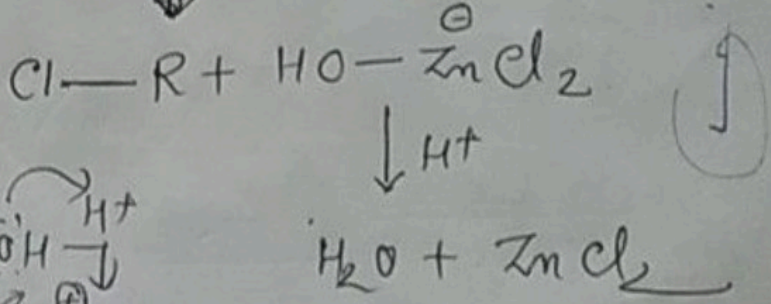 Cl—R + HO—ZnCl₂
⊖
↓ H+
H+
OH
⊕
H₂O + ZnCl₂